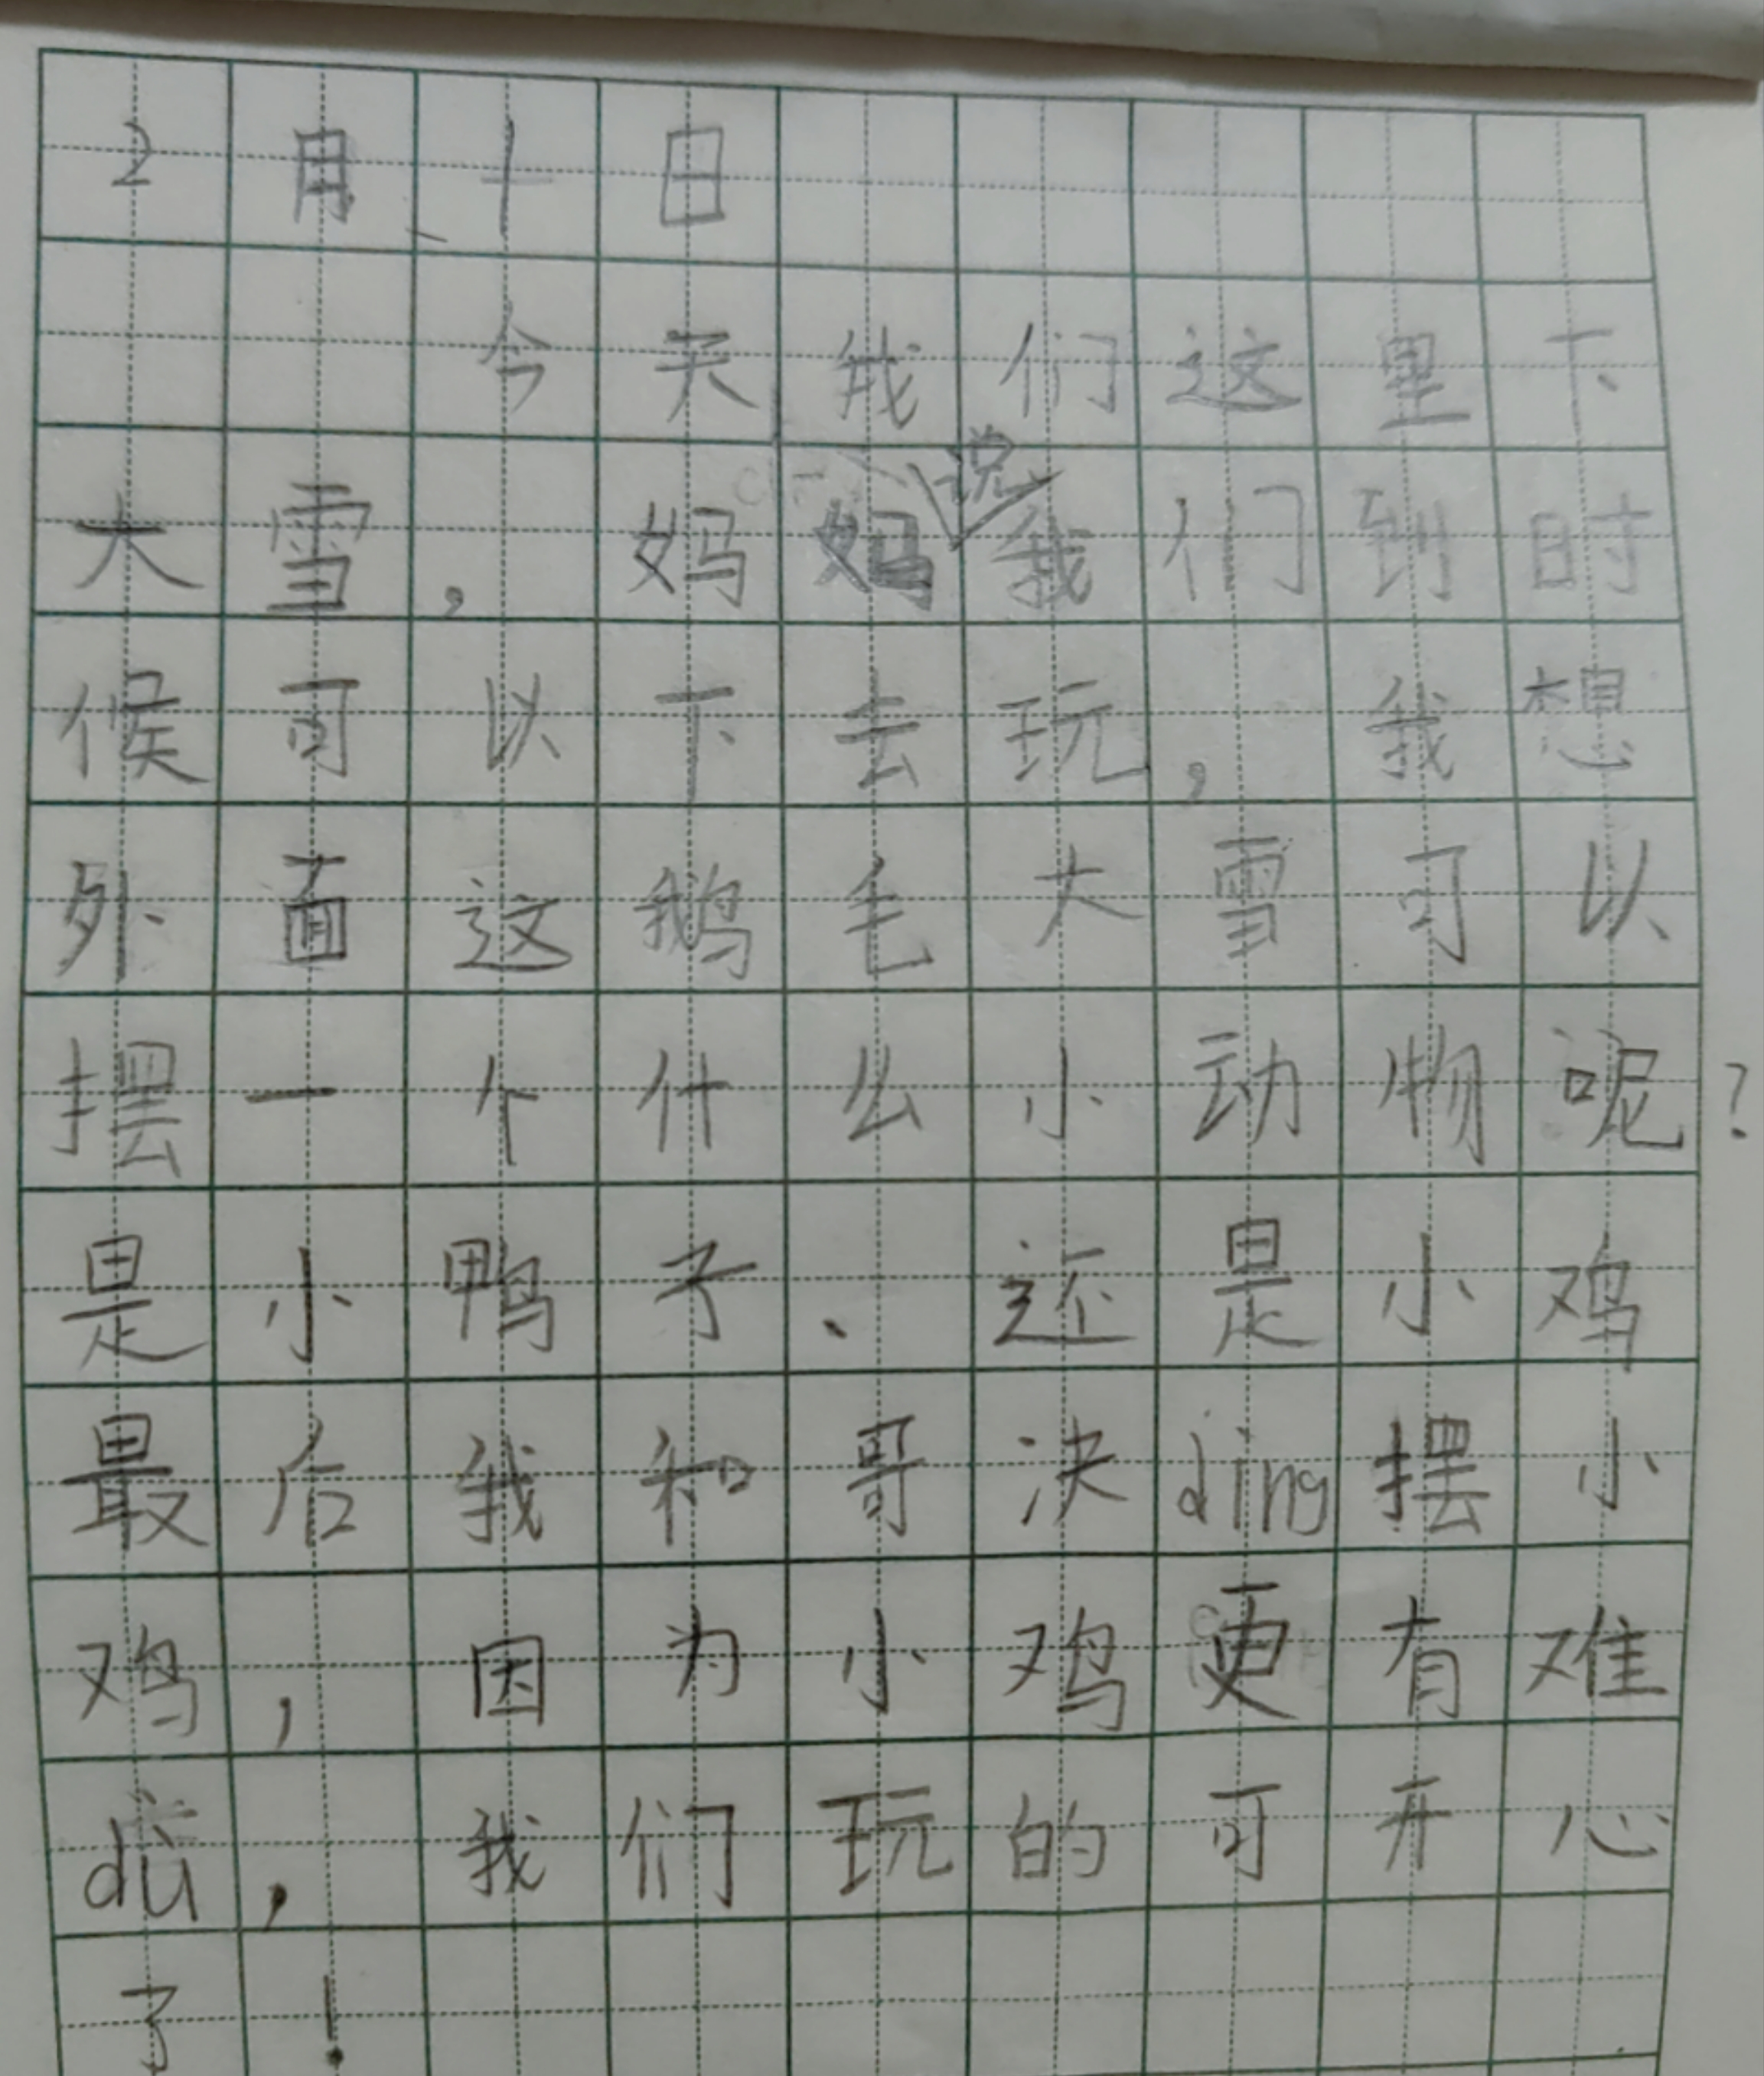 2月十日
今天我们这里下
大雪，妈妈说我们到时
候可以下去玩，我想
外面这鹅毛大雪可以
摆一个什么小动物呢？
是小鸭子、还是小鸡
最后我和哥决ding摆小
鸡，因为小鸡更有难
dù，我们玩的可开心
了！